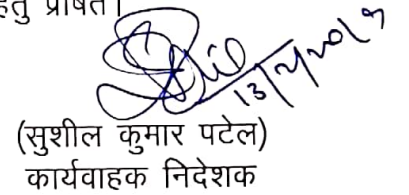 हेतु प्रेषित।
13/2/2019
(सुशील कुमार पटेल)
कार्यवाहक निदेशक